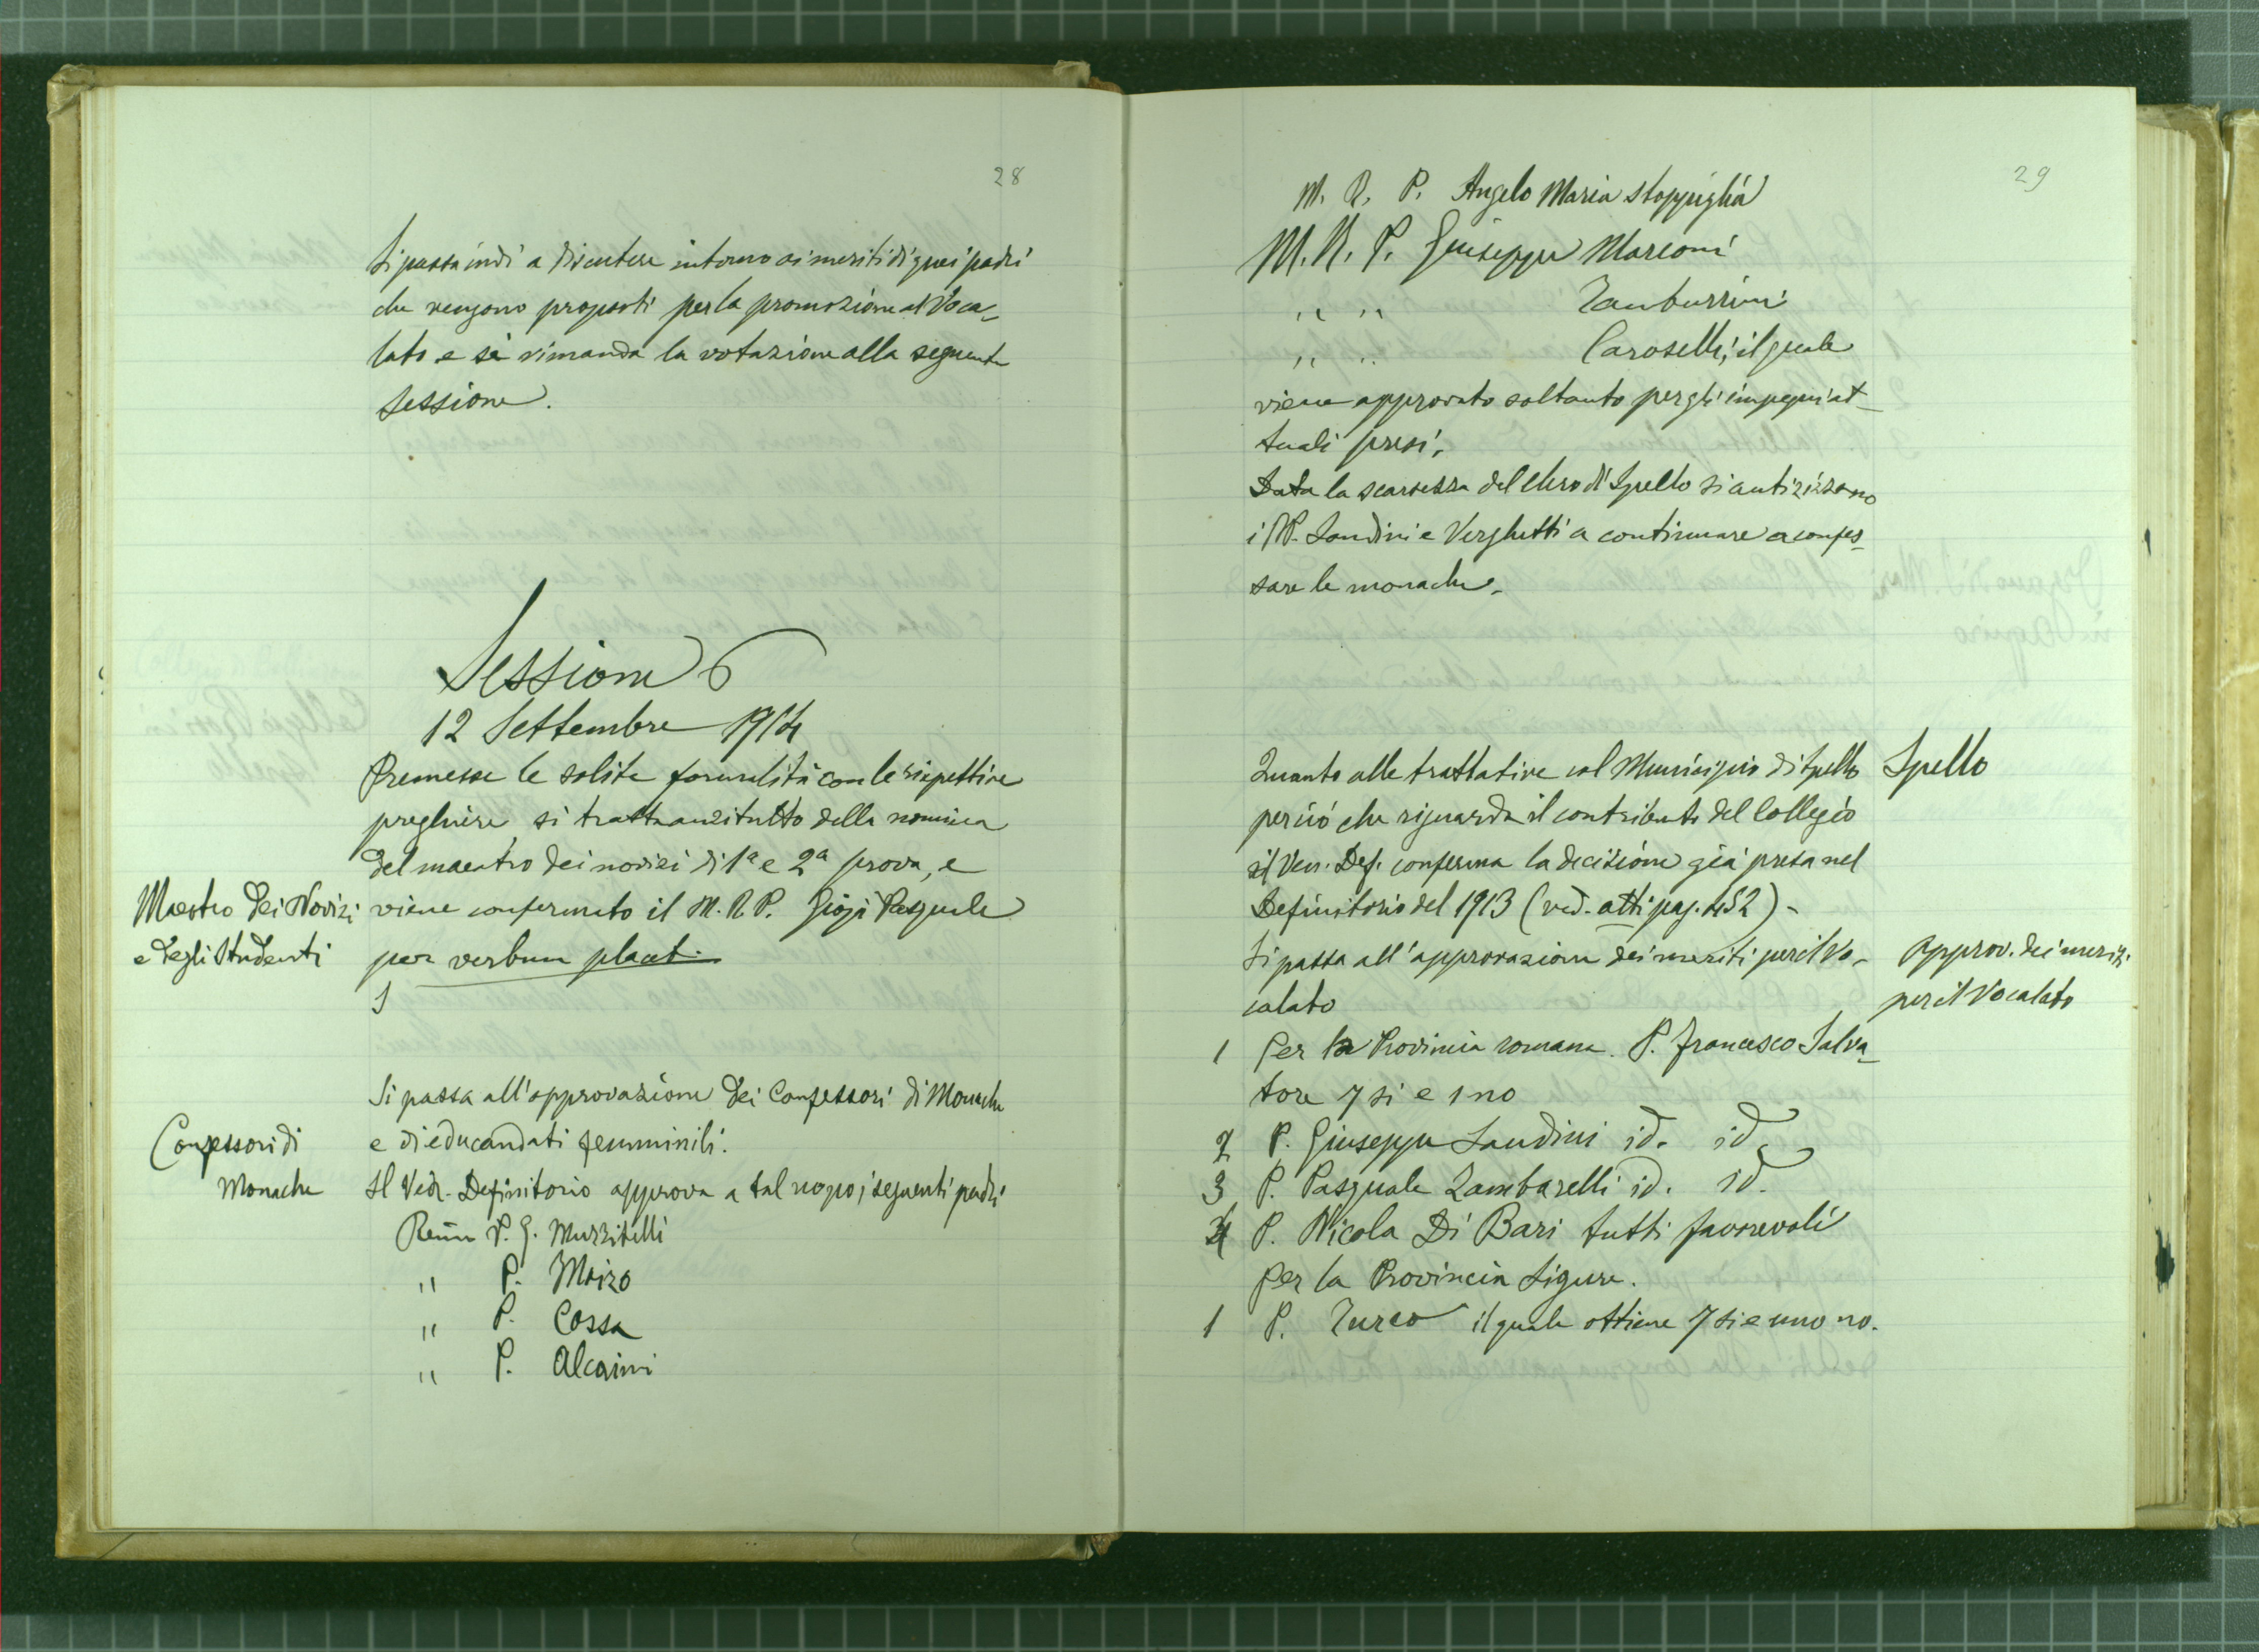 28
Si passa indi a discutere intorno ai meriti di quei padri
che vengono proposti per la promozione al Voca-
lato e si rimanda la votazione alla seguente
sessione.
Sessione 6
12 Settembre 1914
Premesse le solite formalità con le rispettive
preghiere si tratta anzitutto della nomina
del maestro dei novizi di 1a e 2a prova, e
Maestro dei Novizi
e degli Studenti
viene confermato il M. R. P. Gioja Pasquale
per verbum placet.
Si passa all'approvazione dei Confessori di Monache
Confessori di
Monache
e di educandati femminili.
Il Ven. Definitorio approva a tal uopo i seguenti padri
P. G. Muzzitelli
" P. Moizo
" P. Cossa
" P. Alcaini
29
M. R. P. Angelo Maria Stoppiglia
M. R. P. Giuseppe Marconi
" " Tamburrini
" " Caroselli, il quale
viene approvato soltanto per gli impegni at-
tuali presi.
Data la scarsezza del clero di Spello si autorizzano
i PP. Landini e Verghetti a continuare a confes-
sare le monache.
Quanto alle trattative col Municipio di Spello
Spello
per ciò che riguarda il contributo del Collegio
il Ven. Def. conferma la decisione già presa nel
Definitorio del 1913 (ved. atti pag. 452) -
Si passa all'approvazione dei meriti per il Vo-
calato
Approv. dei meriti
per il Vocalato
1 Per la Provincia romana. P. Francesco Salva-
tore 7 si e 1 no
2 P. Giuseppe Landini id. id.
3 P. Pasquale Zambarelli id. id.
4 P. Nicola Di Bari tutti favorevoli
Per la Provincia Ligure.
1 P. Turco il quale ottiene 7 si e uno no.